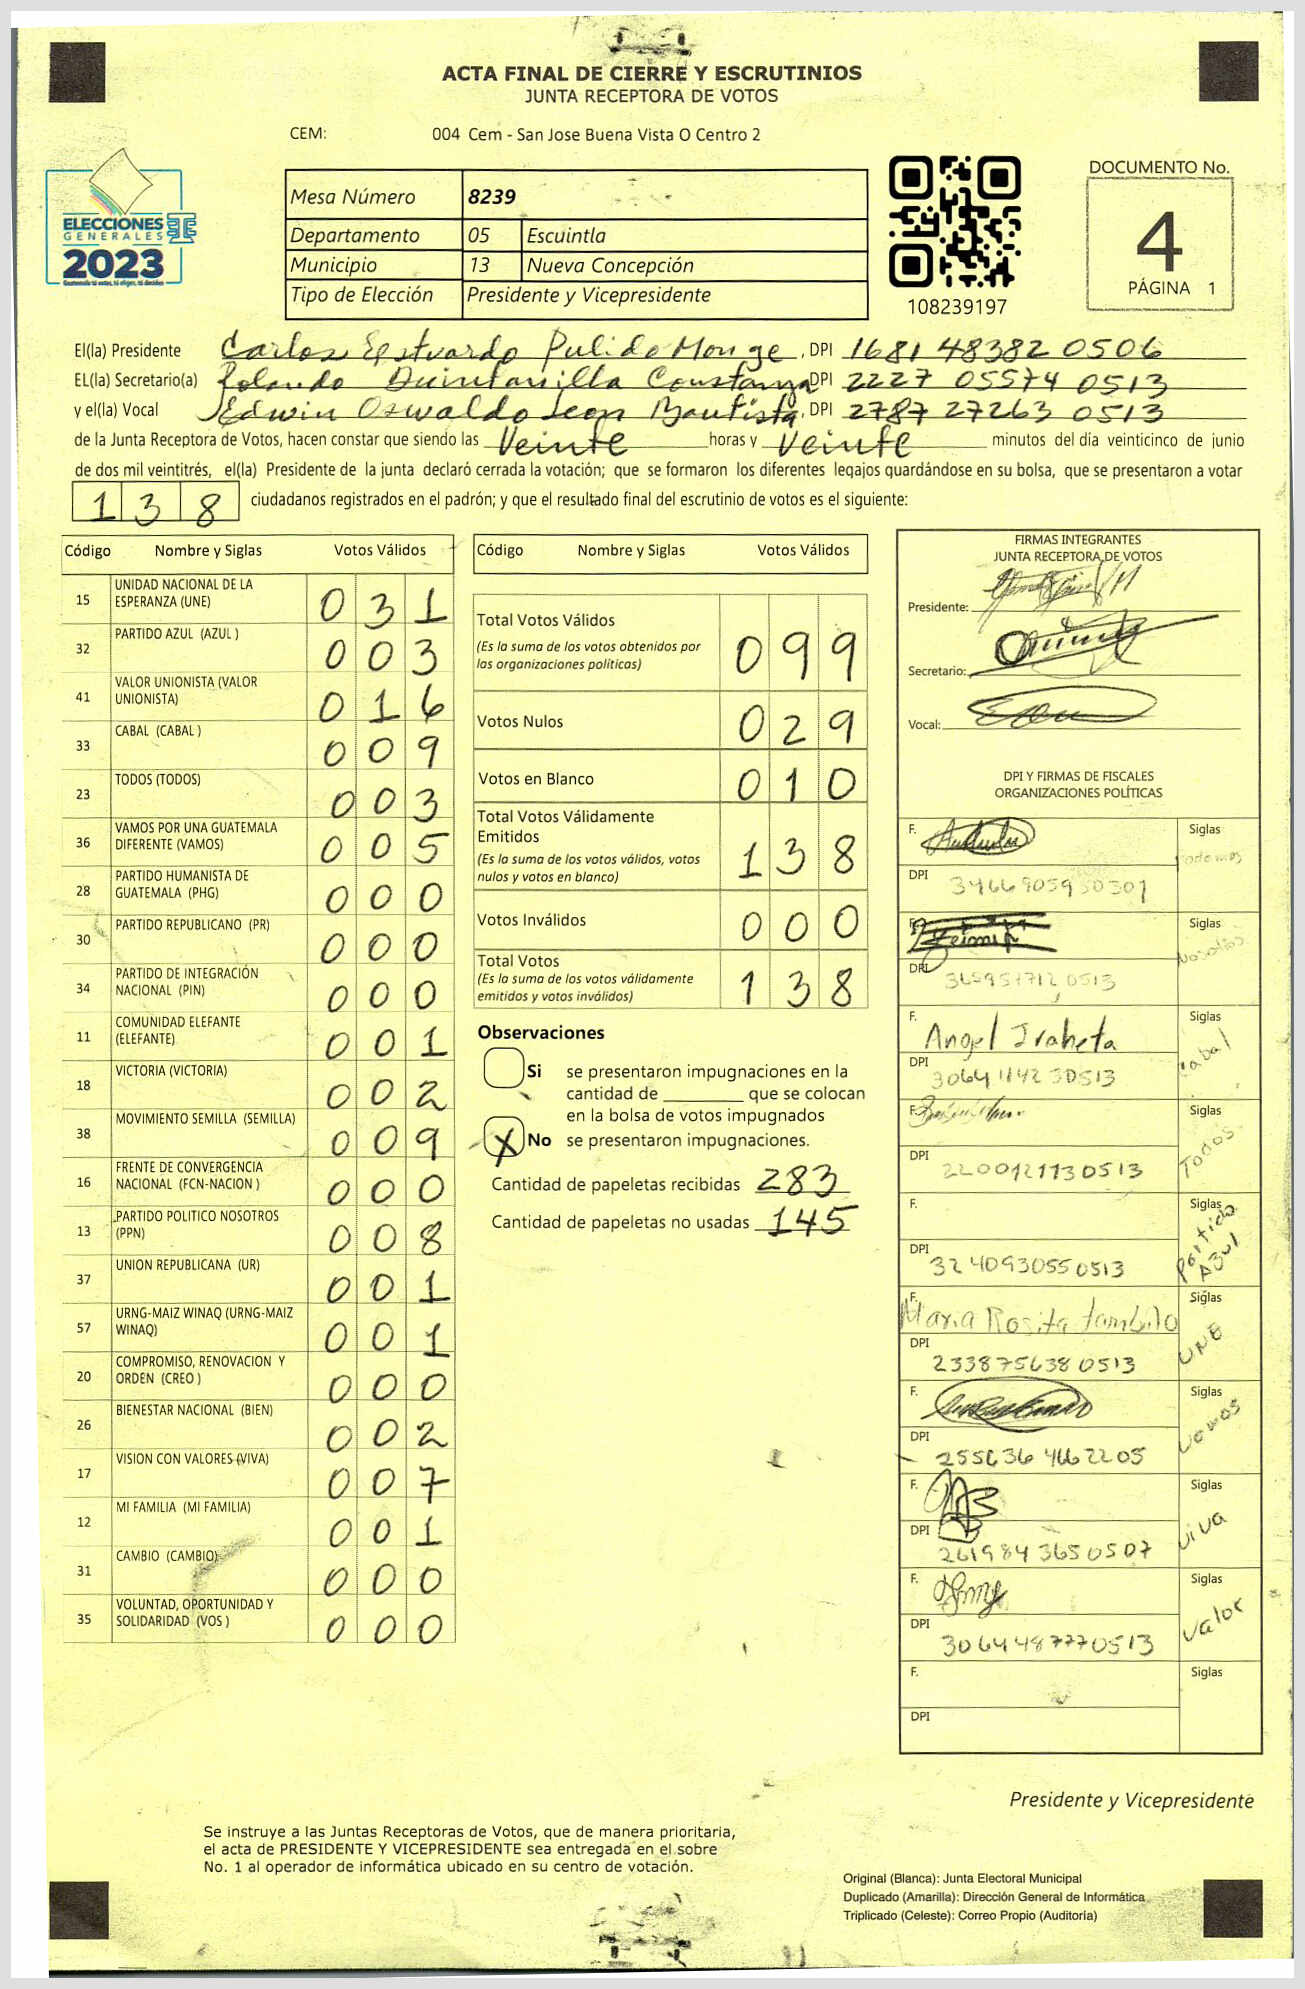 ACTA FINAL DE CIERRE Y ESCRUTINIOS
JUNTA RECEPTORA DE VOTOS
CEM: 004 Cem - San Jose Buena Vista O Centro 2
ELECCIONES
GENERALES
2023
Mesa Número 8239
Departamento 05 Escuintla
Municipio 13 Nueva Concepción
Tipo de Elección Presidente y Vicepresidente
108239197
DOCUMENTO No.
4
PÁGINA 1
El(la) Presidente Carlos Estuardo Pulido Monge, DPI 1681 48382 0506
EL(la) Secretario(a) Rolando Quintanilla Constanza DPI 2227 05574 0513
y el(la) Vocal Edwin Oswaldo Leon Bautista, DPI 2787 27263 0513
de la Junta Receptora de Votos, hacen constar que siendo las Veinte horas y Veinte minutos del día veinticinco de junio
de dos mil veintitrés, el(la) Presidente de la junta declaró cerrada la votación; que se formaron los diferentes legajos guardándose en su bolsa, que se presentaron a votar
138 ciudadanos registrados en el padrón; y que el resultado final del escrutinio de votos es el siguiente:
Código Nombre y Siglas Votos Válidos
15 UNIDAD NACIONAL DE LA ESPERANZA (UNE) 031
32 PARTIDO AZUL (AZUL ) 003
41 VALOR UNIONISTA (VALOR UNIONISTA) 016
33 CABAL (CABAL ) 009
23 TODOS (TODOS) 003
36 VAMOS POR UNA GUATEMALA DIFERENTE (VAMOS) 005
28 PARTIDO HUMANISTA DE GUATEMALA (PHG) 000
30 PARTIDO REPUBLICANO (PR) 000
34 PARTIDO DE INTEGRACIÓN NACIONAL (PIN) 000
11 COMUNIDAD ELEFANTE (ELEFANTE) 001
18 VICTORIA (VICTORIA) 002
38 MOVIMIENTO SEMILLA (SEMILLA) 009
16 FRENTE DE CONVERGENCIA NACIONAL (FCN-NACION ) 000
13 PARTIDO POLITICO NOSOTROS (PPN) 008
37 UNION REPUBLICANA (UR) 001
57 URNG-MAIZ WINAQ (URNG-MAIZ WINAQ) 001
20 COMPROMISO, RENOVACION Y ORDEN (CREO ) 000
26 BIENESTAR NACIONAL (BIEN) 002
17 VISION CON VALORES (VIVA) 007
12 MI FAMILIA (MI FAMILIA) 001
31 CAMBIO (CAMBIO) 000
35 VOLUNTAD, OPORTUNIDAD Y SOLIDARIDAD (VOS ) 000
Código Nombre y Siglas Votos Válidos
Total Votos Válidos 099
(Es la suma de los votos obtenidos por
las organizaciones políticas)
Votos Nulos 029
Votos en Blanco 010
Total Votos Válidamente
Emitidos 138
(Es la suma de los votos válidos, votos
nulos y votos en blanco)
Votos Inválidos 000
Total Votos 138
(Es la suma de los votos válidamente
emitidos y votos inválidos)
Observaciones
Si se presentaron impugnaciones en la
cantidad de ________ que se colocan
en la bolsa de votos impugnados
X No se presentaron impugnaciones.
Cantidad de papeletas recibidas 283
Cantidad de papeletas no usadas 145
FIRMAS INTEGRANTES
JUNTA RECEPTORA DE VOTOS
Presidente:
Secretario:
Vocal:
DPI Y FIRMAS DE FISCALES
ORGANIZACIONES POLÍTICAS
F. Siglas Podemos
DPI 3466905950301
F. Siglas Nosotros
DPI 0513
F. Angel Iraheta Siglas Cabal
DPI 3064114230513
F. Siglas Todos
DPI 2200121130513
F. Siglas Partido Azul
DPI 3240930550513
F. Maria Rosita Siglas UNE
DPI 2338756380513
F. Siglas Vamos
DPI 2556364662205
F. Siglas Viva
DPI 2619843650507
F. Siglas Valor
DPI 3064487770513
F. Siglas
DPI
Presidente y Vicepresidente
Se instruye a las Juntas Receptoras de Votos, que de manera prioritaria,
el acta de PRESIDENTE Y VICEPRESIDENTE sea entregada en el sobre
No. 1 al operador de informática ubicado en su centro de votación.
Original (Blanca): Junta Electoral Municipal
Duplicado (Amarilla): Dirección General de Informática
Triplicado (Celeste): Correo Propio (Auditoría)